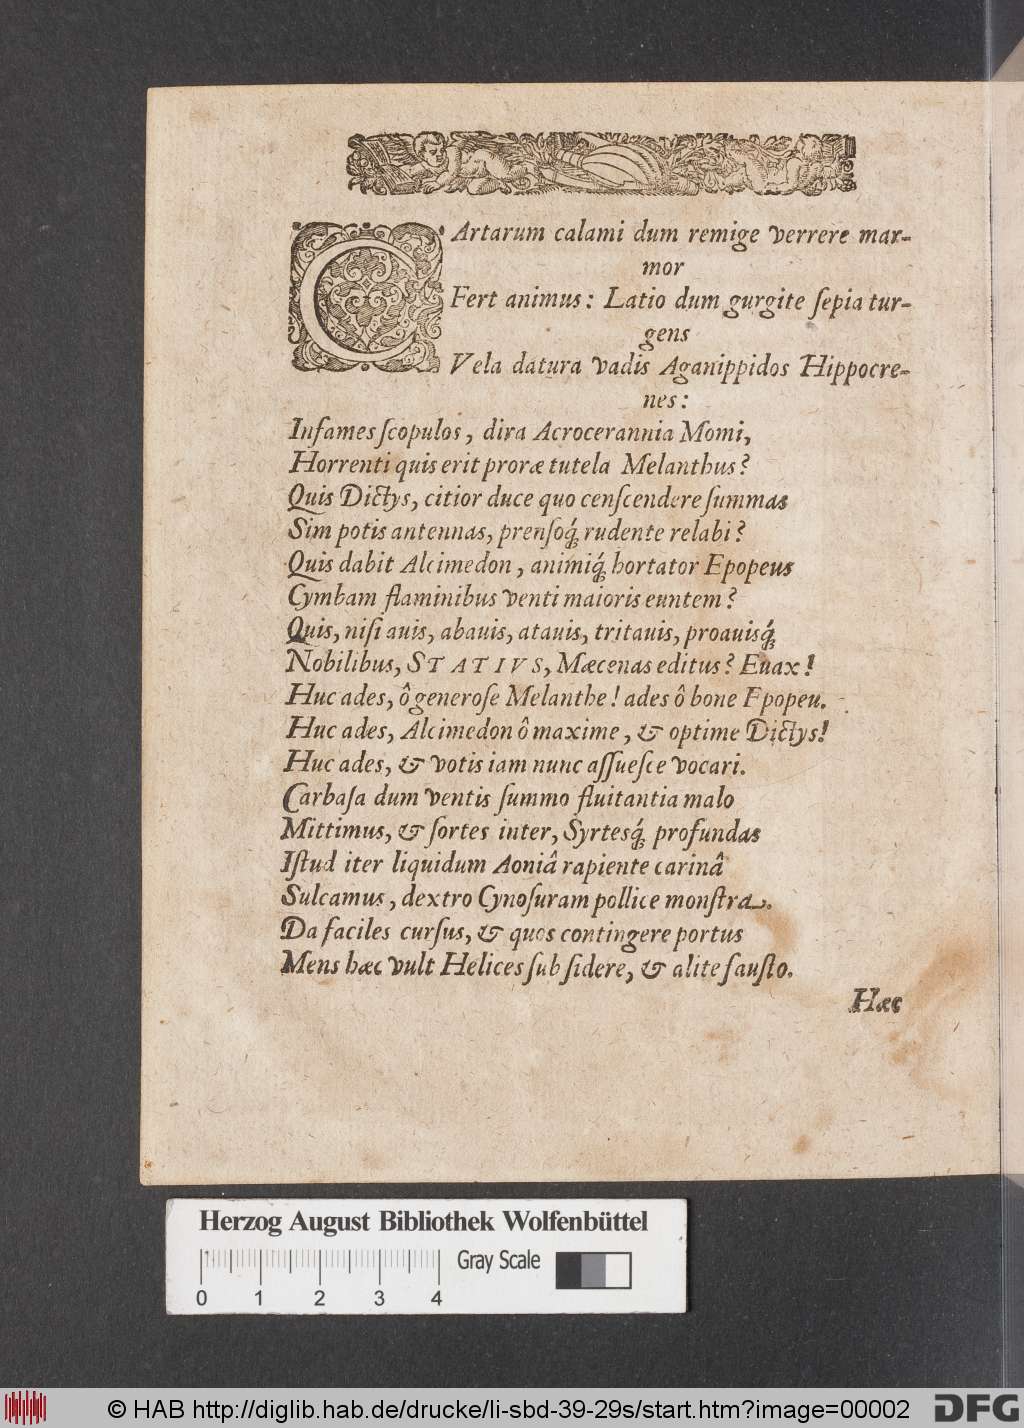 CArtarum calami dum remige verrere mar-
mor
Fert animus: Latio dum gurgite ſepia tur-
gens
Vela datura vadis Aganippidos Hippocre-
nes:
Infames ſcopulos, dira Acrocerannia Momi,
Horrenti quis erit proræ tutela Melanthus?
Quis Dictys, citior duce quo cenſcendere ſummas
Sim potis antennas, prenſoq́; rudente relabi?
Quis dabit Alcimedon, animiq́; hortator Epopeus
Cymbam flaminibus venti maioris euntem?
Quis, niſi auis, abauis, atauis, tritauis, proauisq́;
Nobilibus, STATIVS, Mæcenas editus? Euax!
Huc ades, ô generoſe Melanthe! ades ô bone Epopeu.
Huc ades, Alcimedon ô maxime, & optime Dictys!
Huc ades, & votis iam nunc aſſueſce vocari.
Carbaſa dum ventis ſummo fluitantia malo
Mittimus, & ſortes inter, Syrtesq́; profundas
Iſtud iter liquidum Aoniâ rapiente carinâ
Sulcamus, dextro Cynoſuram pollice monſtra.
Da faciles curſus, & quos contingere portus
Mens hæc vult Helices ſub ſidere, & alite fauſto.
Hæc
Herzog August Bibliothek Wolfenbüttel
Gray Scale
0 1 2 3 4
© HAB http://diglib.hab.de/drucke/li-sbd-39-29s/start.htm?image=00002
DFG